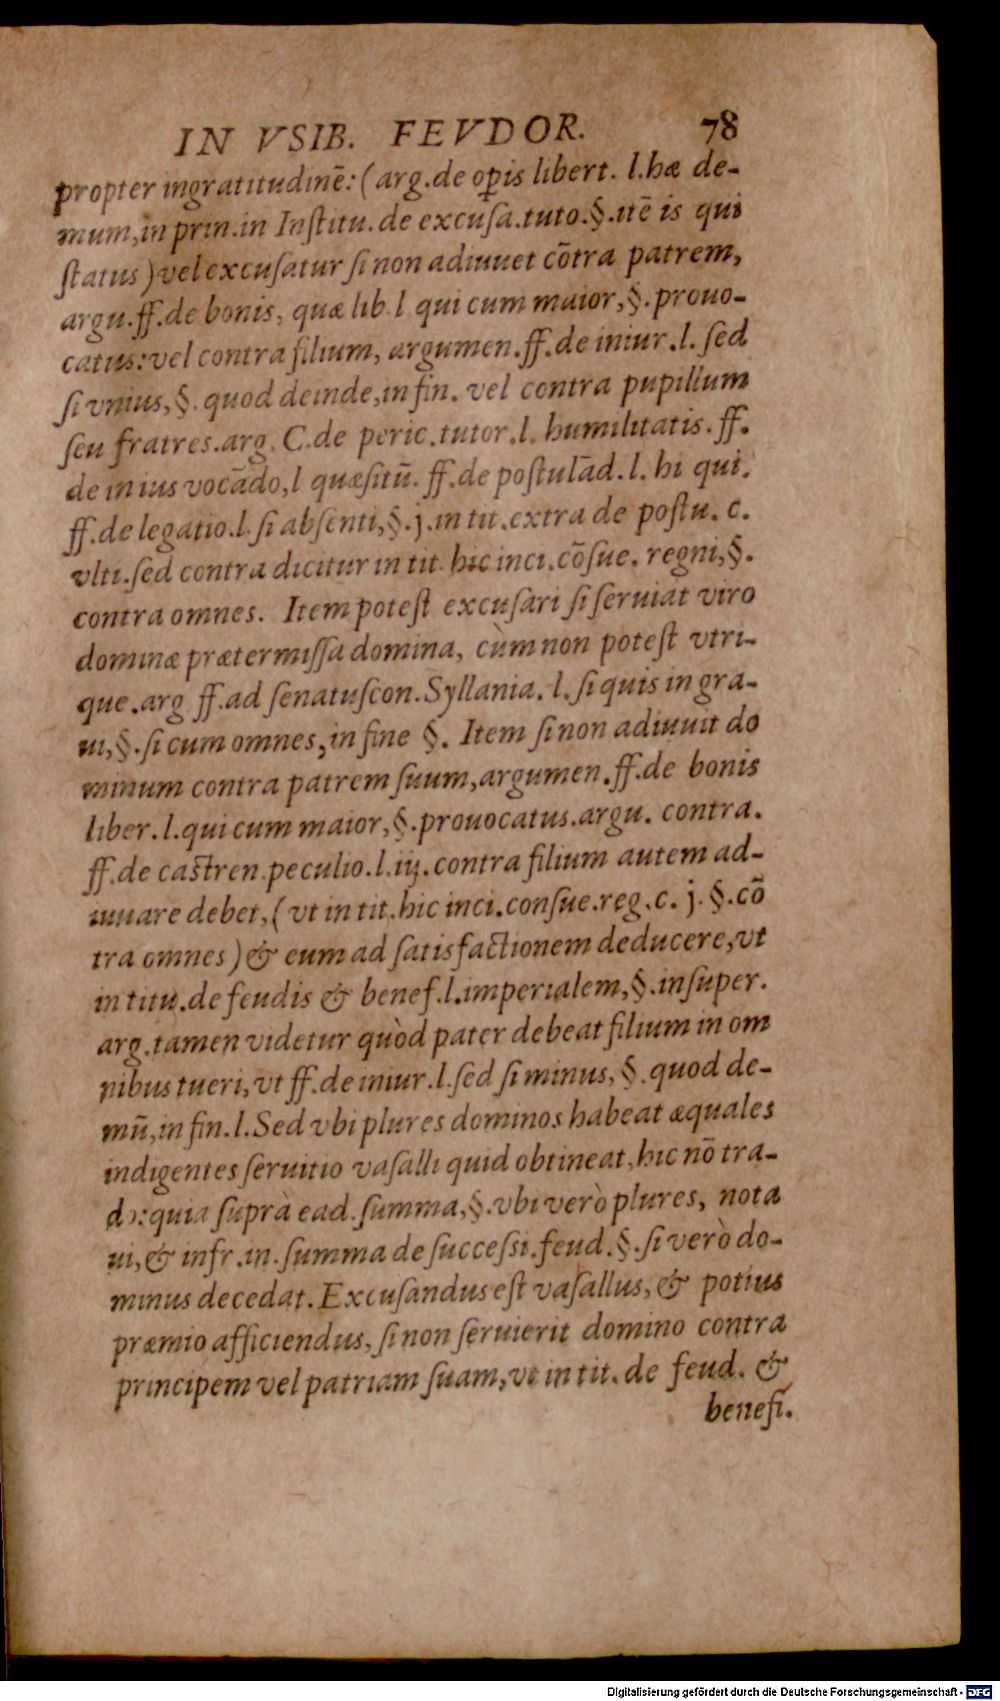 IN VSIB. FEVDOR. 78
propter ingratitudinē: (arg.de oꝑis libert. l.hæ de-
mum, in prin.in Inſtitu.de excuſa.tuto.§.itē is qui
ſtatus) vel excuſatur ſi non adiuuet cōtra patrem,
argu.ff.de bonis, quæ lib.l qui cum maior,§.prouo-
catus:vel contra filium, argumen.ff.de iniur.l.ſed
ſi vnius,§.quod deinde,in fin. vel contra pupillum
ſeu fratres.arg. C.de peric.tutor.l. humilitatis.ff.
de in ius vocādo,l quæſitū. ff.de poſtulād.l. hi qui.
ff.de legatio.l.ſi abſenti,§.j.in tit.extra de poſtu. c.
vlti.ſed contra dicitur in tit. hic inci.cōſue. regni,§.
contra omnes. Item poteſt excuſari ſi ſeruiat viro
dominæ prætermiſſa domina, cùm non poteſt vtri-
que.arg ff.ad ſenatuſcon.Syllania.l.ſi quis in gra-
ui,§.ſi cum omnes,in fine §. Item ſi non adiuuit do
minum contra patrem ſuum,argumen.ff.de bonis
liber.l.qui cum maior,§.prouocatus.argu. contra.
ff.de caſtren.peculio.l.iij.contra filium autem ad-
iuuare debet,(vt in tit.hic inci.conſue.reg.c. j.§.cō
tra omnes) & eum ad ſatisfactionem deducere,vt
in titu.de feudis & benef.l.imperialem,§.inſuper.
arg.tamen videtur quòd pater debeat filium in om
nibus tueri,vt ff.de iniur.l.ſed ſi minus,§.quod de-
mū,in fin.l.Sed vbi plures dominos habeat æquales
indigentes ſeruitio vaſalli quid obtineat,hic nō tra-
do:quia ſuprà ead.ſumma,§.vbi verò plures, nota
ui,& infr.in.ſumma de ſucceſſi.feud.§.ſi verò do-
minus decedat. Excuſandus eſt vaſallus,& potius
præmio afficiendus,ſi non ſeruierit domino contra
principem vel patriam ſuam,vt in tit. de feud. &
benefi.
Digitalisierung gefördert durch die Deutsche Forschungsgemeinschaft - DFG